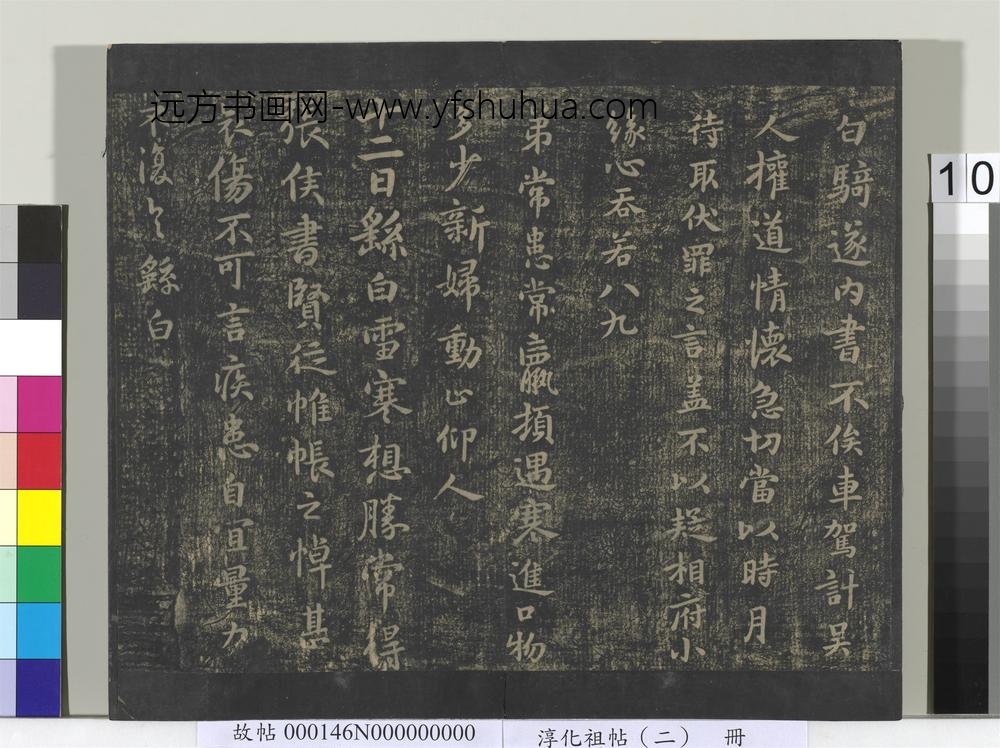 白騎遂內書不俟車駕計吳
人權道情懷急切當以時月
待取伏罪之言盖不以疑相府小
緣心吞若八九
弟常患常羸頓遇寒進口物
多少新婦動止仰人
十二日繇白雪寒想勝常得
張侯書賢從帷帳之悼甚
哀傷不可言疾患自宜量力
不復具繇白
远方书画网-www.yfshuhua.com
10
故帖 000146N000000000
淳化祖帖（二） 冊